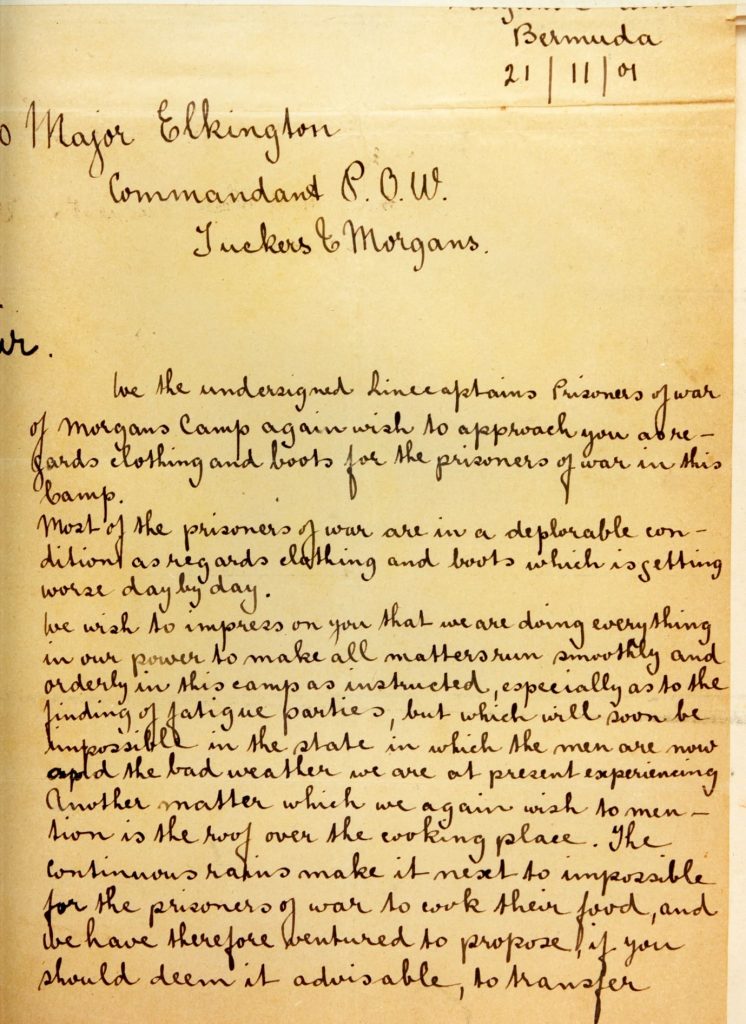 Bermuda
21/11/01
Major Elkington
Commandant P.O.W.
Tuckers & Morgans.
We the undersigned Linecaptains Prisoners of war
of Morgans Camp again wish to approach you as re-
gards clothing and boots for the prisoners of war in this
Camp.
Most of the prisoners of war are in a deplorable con-
dition as regards clothing and boots which is getting
worse day by day.
We wish to impress on you that we are doing everything
in our power to make all matters run smoothly and
orderly in this camp as instructed, especially as to the
finding of fatigue parties, but which will soon be
impossible in the state in which the men are now
and the bad weather we are at present experiencing
Another matter which we again wish to men-
tion is the roof over the cooking place. The
continuous rains make it next to impossible
for the prisoners of war to cook their food, and
we have therefore ventured to propose, if you
should deem it advisable, to transfer